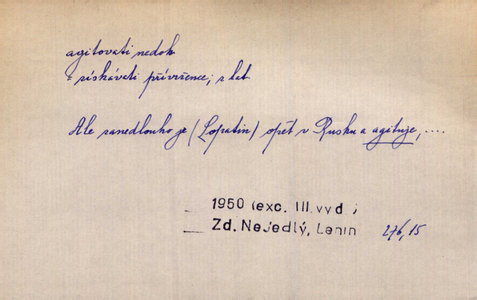 agitovati nedok
získávati přívržence; z lat
Ale zanedlouho je (Lopatin) opět v Rusku a agituje, ....
1950 (exc. III. vyd.)
Zd. Nejedlý, Lenin 276, 15